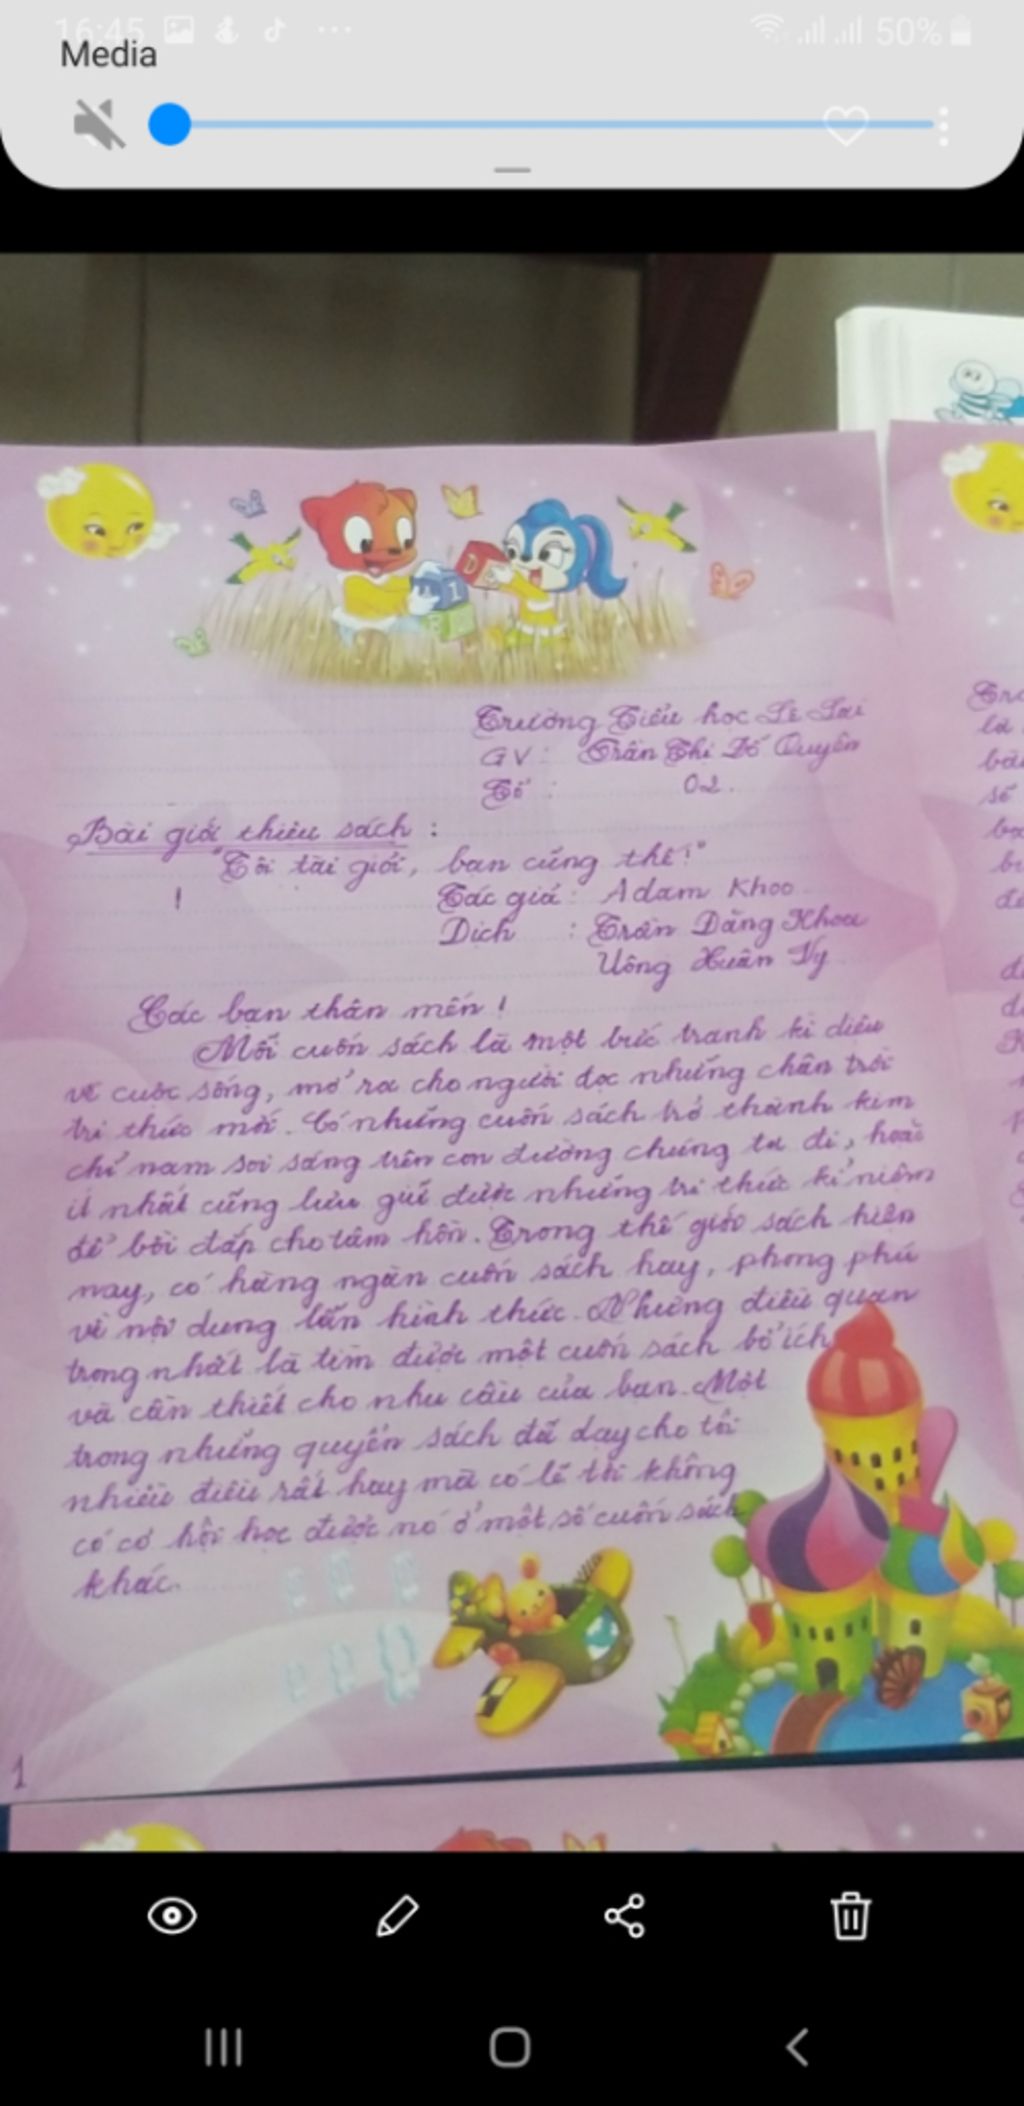 16:45
50%
Media
Trường Tiểu học Lê Lai
GV : Trần Thị Đỗ Quyên
Tổ : 02.
Bài giới thiệu sách :
"Tôi tài giỏi, bạn cũng thế!"
! Tác giả : Adam Khoo
Dịch : Trần Đăng Khoa
Uông Xuân Vy
Các bạn thân mến !
Mỗi cuốn sách là một bức tranh kì diệu
về cuộc sống, mở ra cho người đọc những chân trời
tri thức mới. Có những cuốn sách trở thành kim
chỉ nam soi sáng trên con đường chúng ta đi, hoặc
ít nhất cũng lưu giữ được những tri thức kỉ niệm
để bồi đắp cho tâm hồn. Trong thế giới sách hiện
nay, có hàng ngàn cuốn sách hay, phong phú
về nội dung lẫn hình thức. Nhưng điều quan
trọng nhất là tìm được một cuốn sách bổ ích
và cần thiết cho nhu cầu của bạn. Một
trong những quyển sách đã dạy cho tôi
nhiều điều rất hay mà có lẽ tôi không
có cơ hội học được nó ở một số cuốn sách
khác.
1